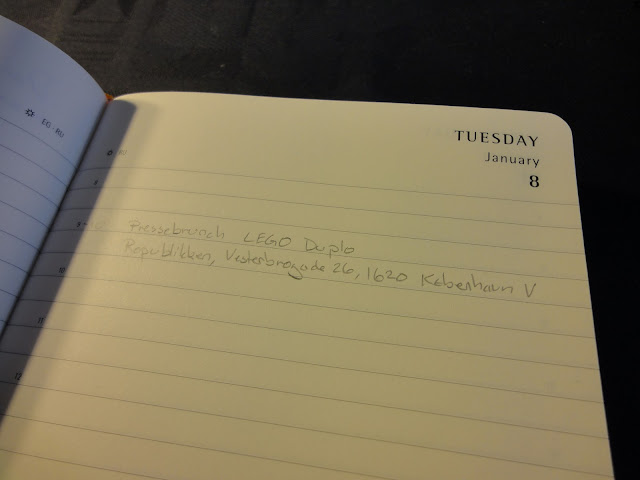 EG · RU
TUESDAY
January
8
RU
8
9 Pressebrunch LEGO Duplo
Republikken, Vesterbrogade 26, 1620 København V
10
11
12